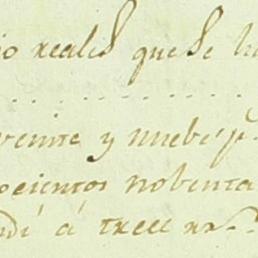 io reales que Se h
veinte y nuebe p.
ocientos nobenta
á trece rr.